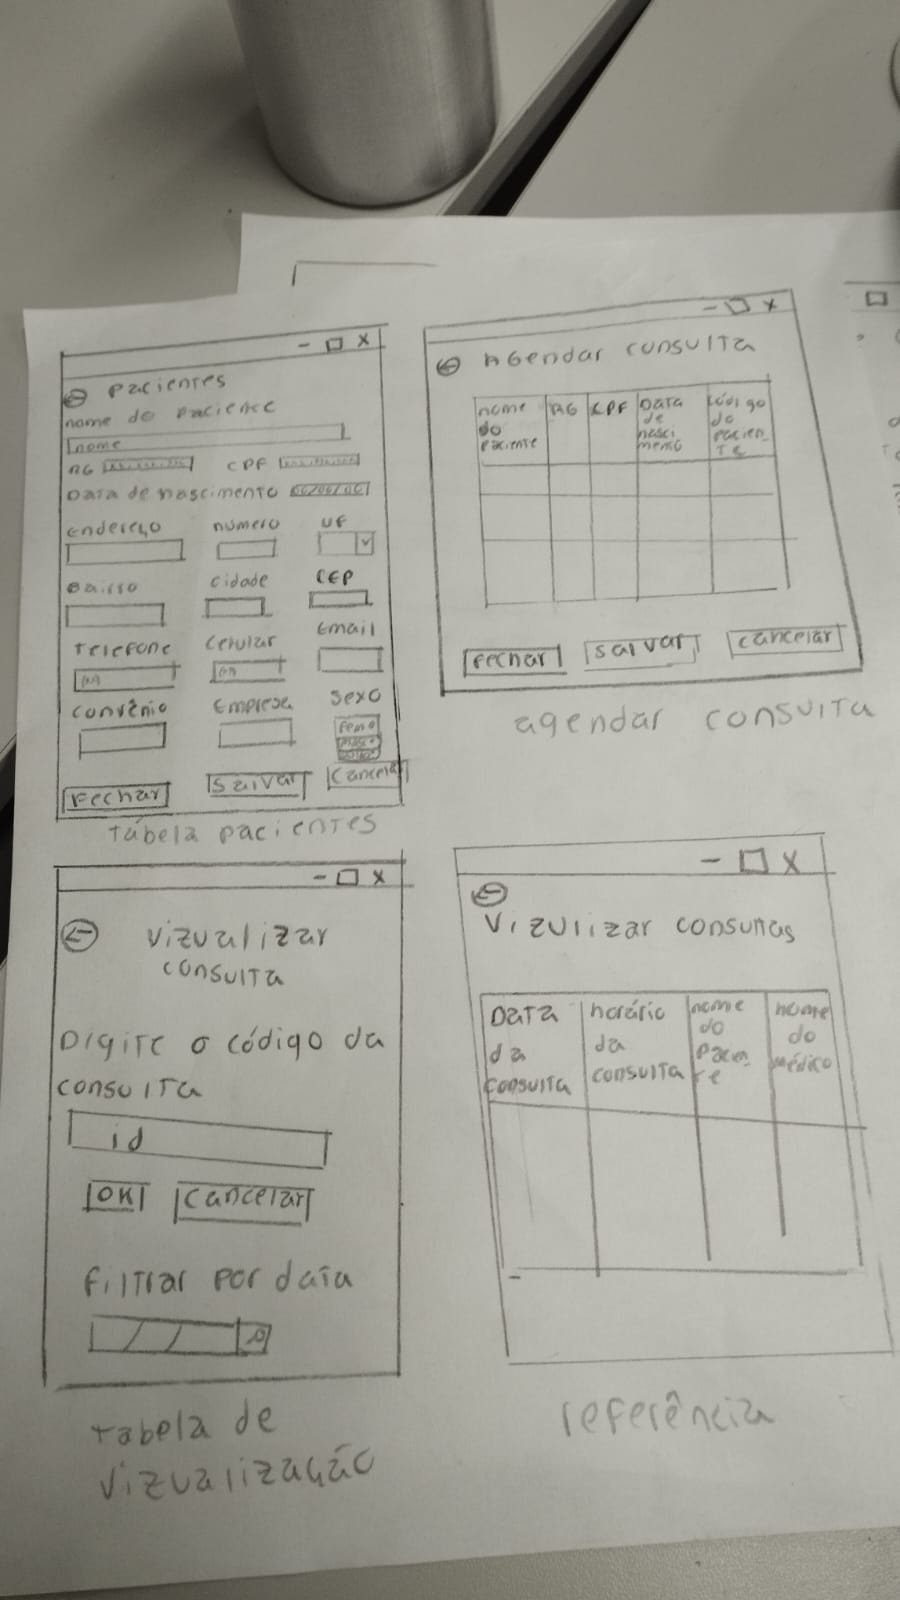 - □ x
Pacientes
nome do paciente
nome
RG CPF
Data de nascimento 00/00/00
Endereço número UF
Bairro cidade CEP
Telefone Celular Email
Convênio Empresa Sexo
Fechar Salvar Cancelar
Tabela pacientes
- □ x
Agendar consulta
nome do paciente RG CPF Data de nascimento Código do paciente
Fechar Salvar Cancelar
agendar consulta
- □ x
vizualizar
consulta
Digite o código da
consulta
id
OK Cancelar
filtrar por data
/ /
tabela de
vizualização
- □ x
Vizulizar consultas
Data da consulta horário da consulta nome do paciente nome do médico
referência